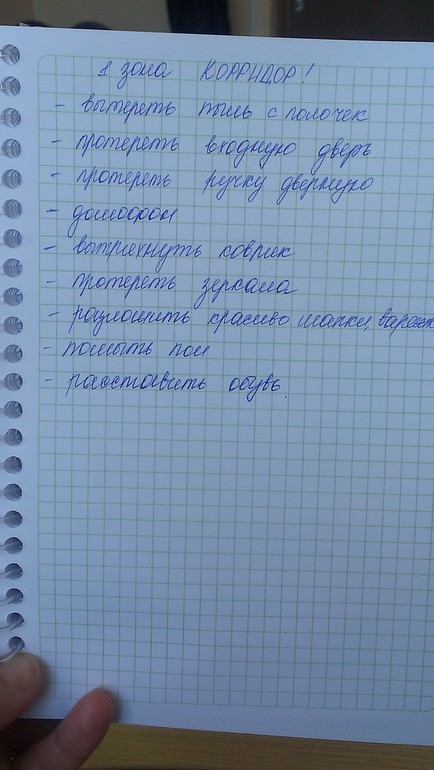 1 зона КОРРИДОР!
- вытереть пыль с полочек
- протереть входную дверь
- протереть ручку дверную
- домофон
- вытряхнуть коврик
- протереть зеркала
- разложить красиво шапки,
- помыть пол
- расставить обувь.